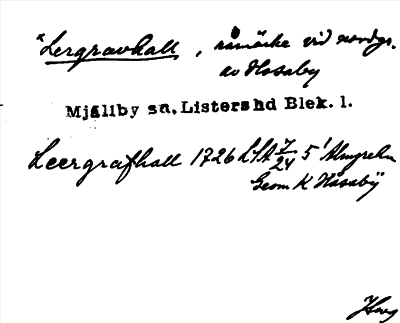 "Lergravhall, råmärke vid nordgr.
av Hosaby
Mjällby sn, Listers hd Blek. l.
Leergrafhall 1726 LSA 7/24 5 Almgrehn
Geom K Håsabÿ